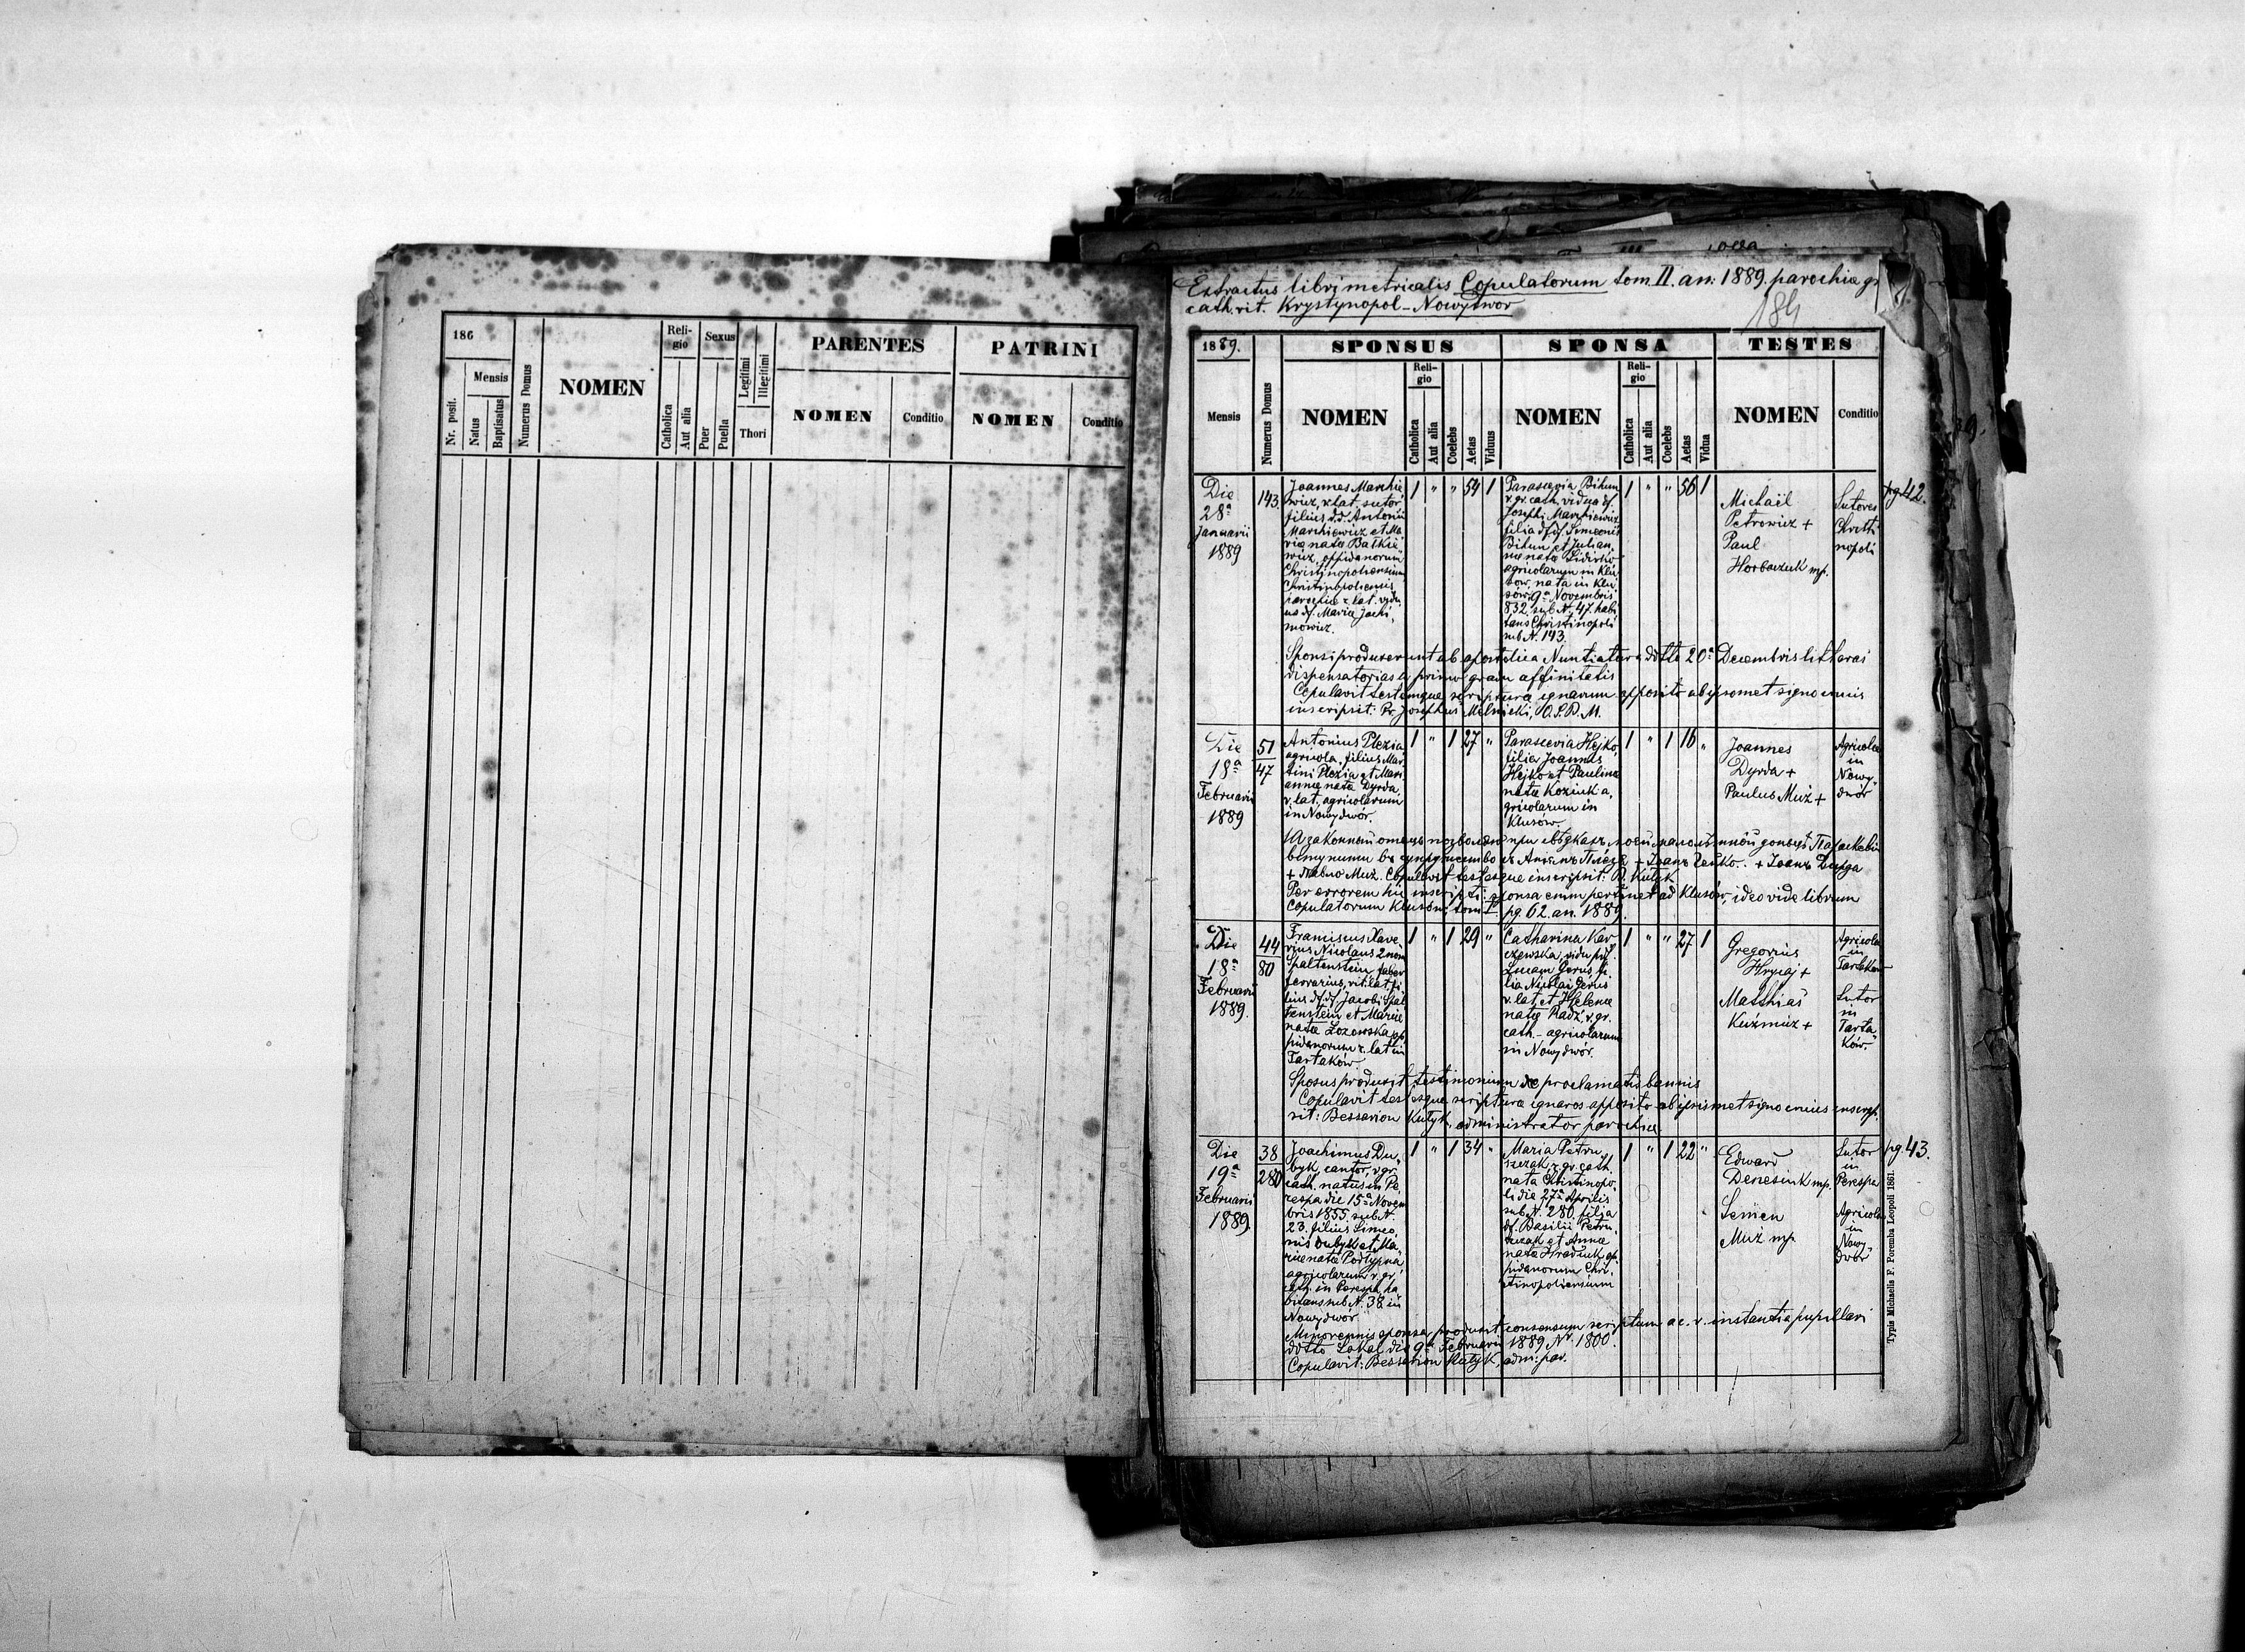 186
Mensis
Nr. posit.
Natus
Baptisatus
Numerus Domus
NOMEN
Reli-
gio
Catholica
Aut alia
Sexus
Puer
Puella
Legitimi
Illegitimi
Thori
PARENTES
NOMEN
Conditio
PATRINI
NOMEN
Conditio
Extractus libri metricalis Copulatorum tom. II. an: 1889. parochiæ gr.
cath. rit. Krystynopol-Nowydwor
184
1889.
Mensis
Numerus Domus
SPONSUS
NOMEN
Reli-
gio
Catholica
Aut alia
Coelebs
Aetas
Viduus
SPONSA
NOMEN
Reli-
gio
Catholica
Aut alia
Coelebs
Aetas
Vidua
TESTES
NOMEN
Conditio
Die
28a
Januarii
1889
143
Joannes Marchie
wicz, r. lat. sutor
filius d.d. Antonii
Marchiewicz et Ma
riæ natæ Batkie
wicz, oppidanorum
Christinopoliensium
Christinopoliensis
parochiæ r. lat. vidu
us df. Mariæ Jachi
mowicz.
1 " " 54 1
Parascevia Bihun
r. gr. cath. vidua df.
Josephi Marchiewicz
filia df. df. Simeonis
Bihun et Julian
næ natæ
agricolarum in Klu
sow, nata in Klu
sow 9a Novembris
832 sub N. 47. habi
tans Christinopoli
sub N. 143.
1 " " 56 1
Michaël
Petrowicz +
Paul
Horbaczuk mp.
Sutores
Christi
nopoli
pg. 42.
Sponsi produxerunt ab apostolica Nuntiatura ddto 20a Decembris litteras
dispensatorias a primo gradu affinitatis
Copulavit testemque scripturæ ignarum apposito ab ipsomet signo crucis
inscripsit: Pr. Josephus Melnicki, O.S.B.M.
Die
18a
Februarii
1889
51
47
Antonius Plezia
agricola, filius Mar
tini Plezia et Mari
annæ natæ Dyrda,
r. lat. agricolarum
in Nowydwór.
1 " 1 27 "
Parascevia Hejko
filia Joannis
Hejko et Paulinæ
natæ Koziuk a,
gricolarum in
Klusów.
1 " 1 16 "
Joannes
Dyrda +
Paulus Muż +
Agricolæ
in
Nowy
dwór
+ Павло Муж. Copulavit testesque inscripsit: B. Kutyk
Per errorem hic inscripti: sponsa enim pertinet ad Klusów, ideo vide librum
Copulatorum Klusow: tom I. pg. 62. an. 1889.
Die
18a
Februarii
1889.
44
80
Franciscus Xave
rius Nicolaus 2 nom
Spaltenstein, faber
ferrarius, rit. lat. fi
lius df. df. Jacobi Spal
tenstein et Mariæ
natæ Lozowska op
pidanorum r. lat in
Tartaków.
1 " 1 29 "
Catharina Kar
czewska, vidu
Lucam Gerus fi
lia Nicolai Gerus
r. lat. et Helenæ
natæ Radź r. gr.
cath. - agricolarum
in Nowydwór.
1 " " 27 1
Gregorius
Hrycaj +
Matthias
Kuźmicz +
Agricola
in
Tartaków
Sutor
in
Tarta
ków.
Sposus produxit testimonium de proclamatis bannis
Copulavit testesque scripturæ ignaros apposito ab ipsismet signo crucis inscrip
sit: Bessarion Kutyk, administrator parochiæ.
Die
19a
Februarii
1889.
38
280
Joachimus Du
byk, cantor, r. gr.
cath. natus in Pe
respa die 15a Novem
bris 1855. sub N.
23. filius Simeo
nis Dubyk et Ma
riæ natæ Podłypna
agricolarum r. gr.
cath. in Perespa, ha
bitans sub N. 38. in
Nowydwór
1 " 1 34 "
Maria Petru
szczak, r. gr. cath.
nata Christinopo
li die 27a Aprilis
sub N. 280. filia
df. Basilii Petru
szczak et Annæ
natæ Hradiuk op
pidanorum Chri
stinopoliensium
1 " 1 22 "
Edward
Denesiuk mp.
Semen
Muz mp.
Sutor
in
Perespa
Agricola
in
Nowy
Dwór
pg. 43.
Minorennis sponsa produxit consensum scriptum a c. r. instantia pupillari
ddtto Sokal die 9a Februarii 1889 Nr. 1800.
Copulavit: Bessarion Kutyk, adm: par.
Typis Michaelis F. Poremba Leopoli 1861.